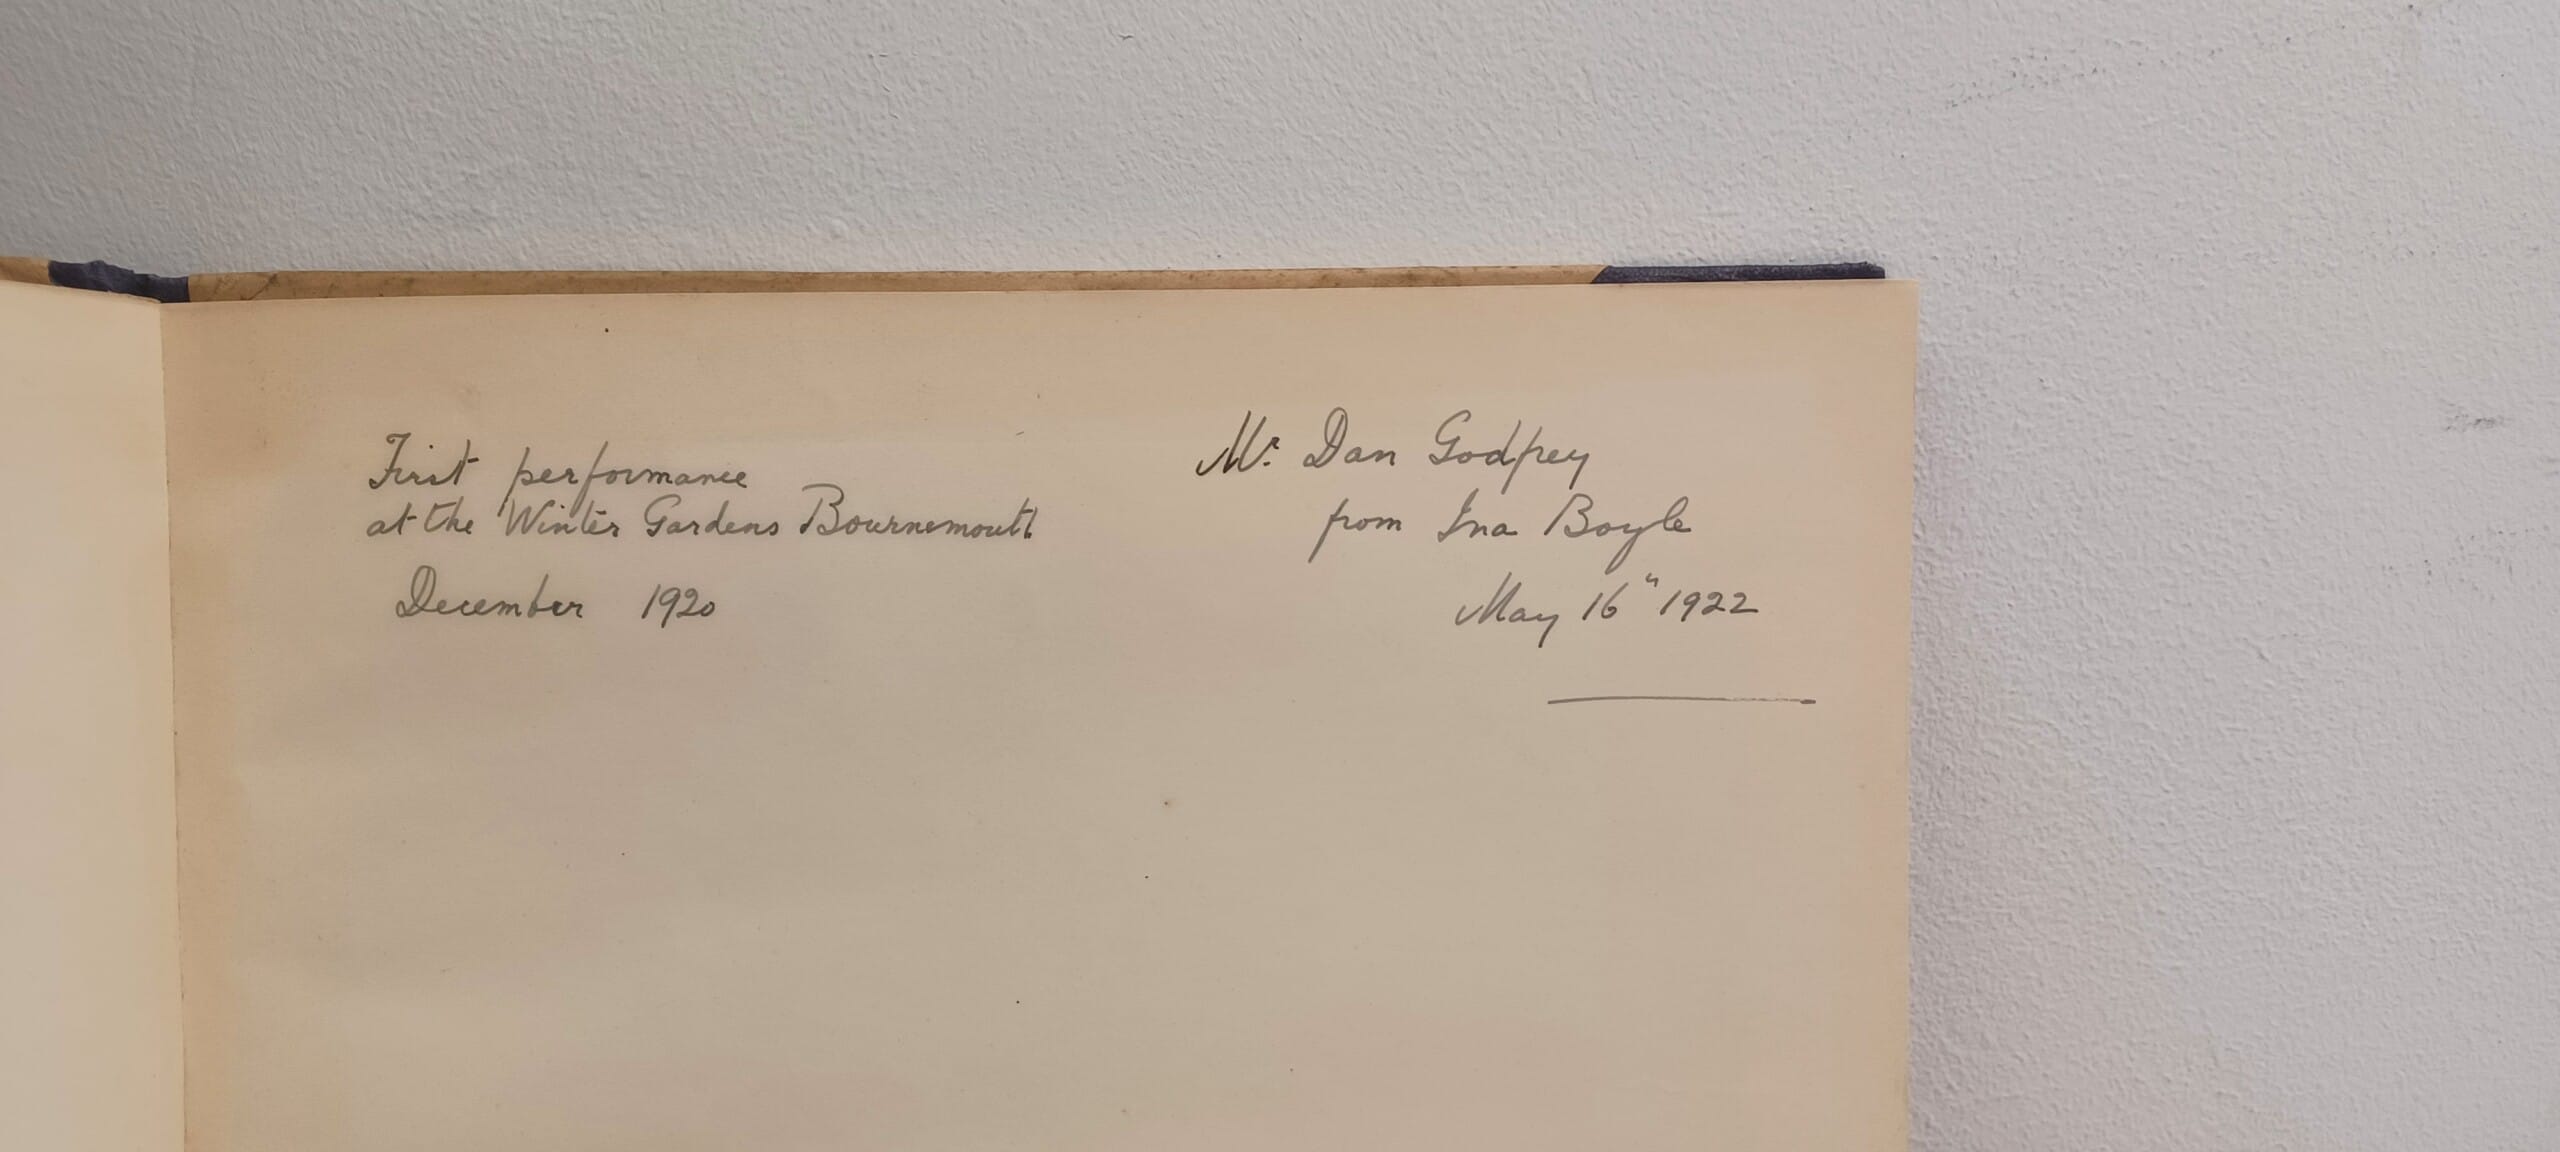 First performance
at the Winter Gardens Bournemouth
December 1920
Mr. Dan Godfrey
from Ina Boyle
May 16" 1922